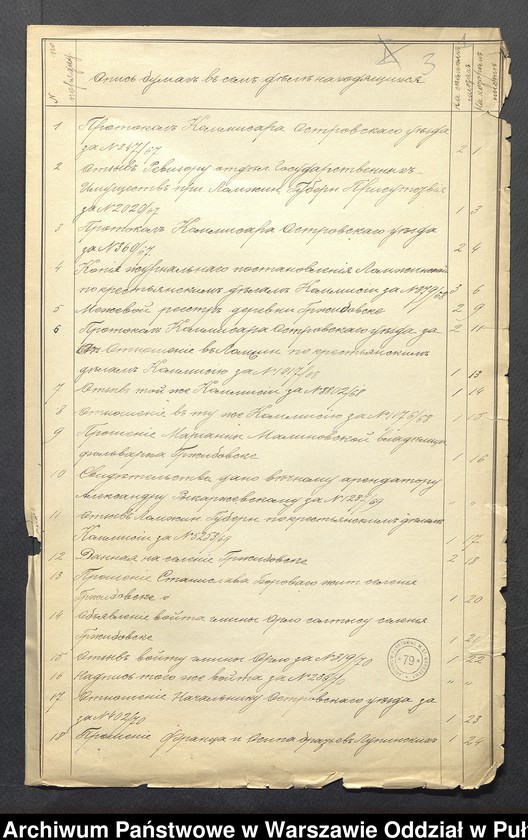 3
Опись бумагъ въ семъ дѣлѣ находящихся
1 Протоколъ Коммисара Островскаго уѣзда
за № 347/67 2 1
2 Отзывъ Ревизору отдѣл. Государственныхъ
Имуществъ при Ломжин. Губерн. Присутствіе
за № 2020/67 1 3
3 Протоколъ Коммисара Островскаго уѣзда
за № 360/67 2 4
4 Копія журнальнаго постановленія Ломжинской
по крестьянскимъ дѣламъ Коммисіи за № 279/68 3 6
5 Межевой реестръ деревни Гржибовске 2 9
6 Протоколъ Коммисара Островскаго уѣзда за 2 11
Отношеніе въ Ломжин. по крестьянскимъ
дѣламъ Коммисію за № 1017/68 1 13
7 Отзывъ той же Коммисіи за № 3102/68 1 14
8 Отношеніе въ ту же Коммисію за № 1176/68 1 15
9 Прошеніе Маріанны Малиновской владѣлицы
фольварка Гржибовске 1 16
10 Свидѣтельство дано вѣчному арендатору
Александру за № 1237/69
11 Отзывъ Ломжин. Губерн. по крестьянскимъ дѣламъ
Коммисіи за № 5253/69 1 17
12 Данная на селеніе Гржибовске 2 18
13 Прошеніе Станислава жит. селенія
Гржибовске 1 20
14 Объявленіе войта гмины Орло солтысу селенія
Гржибовске 1 21
15 Отзывъ войту гмины Орло за № 319/70 1 22
16 Надпись того же войта за № 285/70 " "
17 Отношеніе Начальнику Островскаго уѣзда за
за № 402/70 1 23
18 Прошеніе Франца и Осипа братьевъ Лупинскихъ 1 24
79
Archiwum Państwowe w Warszawie Oddział w Puł